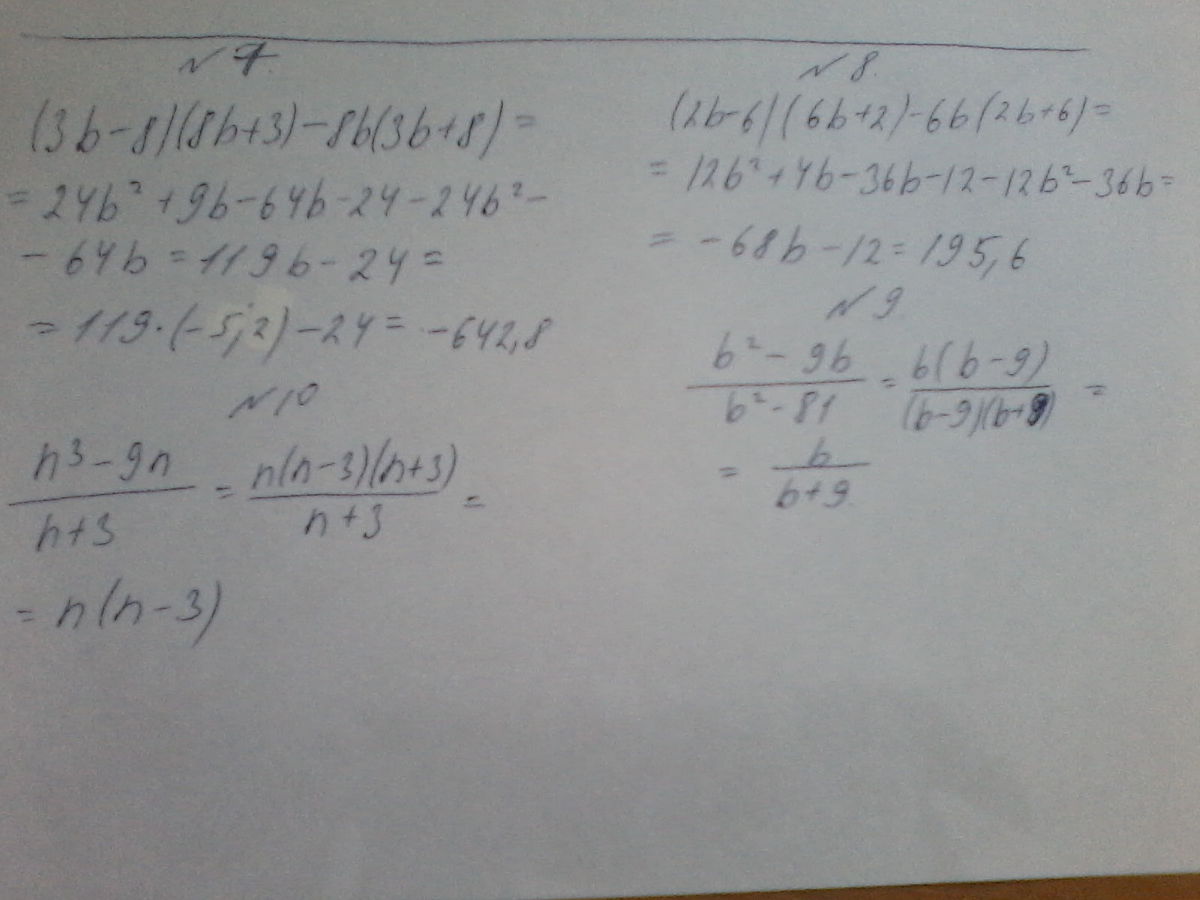 №7.
(3b-8)(8b+3)-8b(3b+8)=
=24b²+9b-64b-24-24b²-
-64b=119b-24=
=119·(-5,2)-24=-642,8
№10
n³-9n/n+3=n(n-3)(n+3)/n+3=
=n(n-3)
№8.
(2b-6)(6b+2)-6b(2b+6)=
=12b²+4b-36b-12-12b²-36b=
=-68b-12=195,6
№9.
b²-9b/b²-81=b(b-9)/(b-9)(b+9)=
=b/b+9.